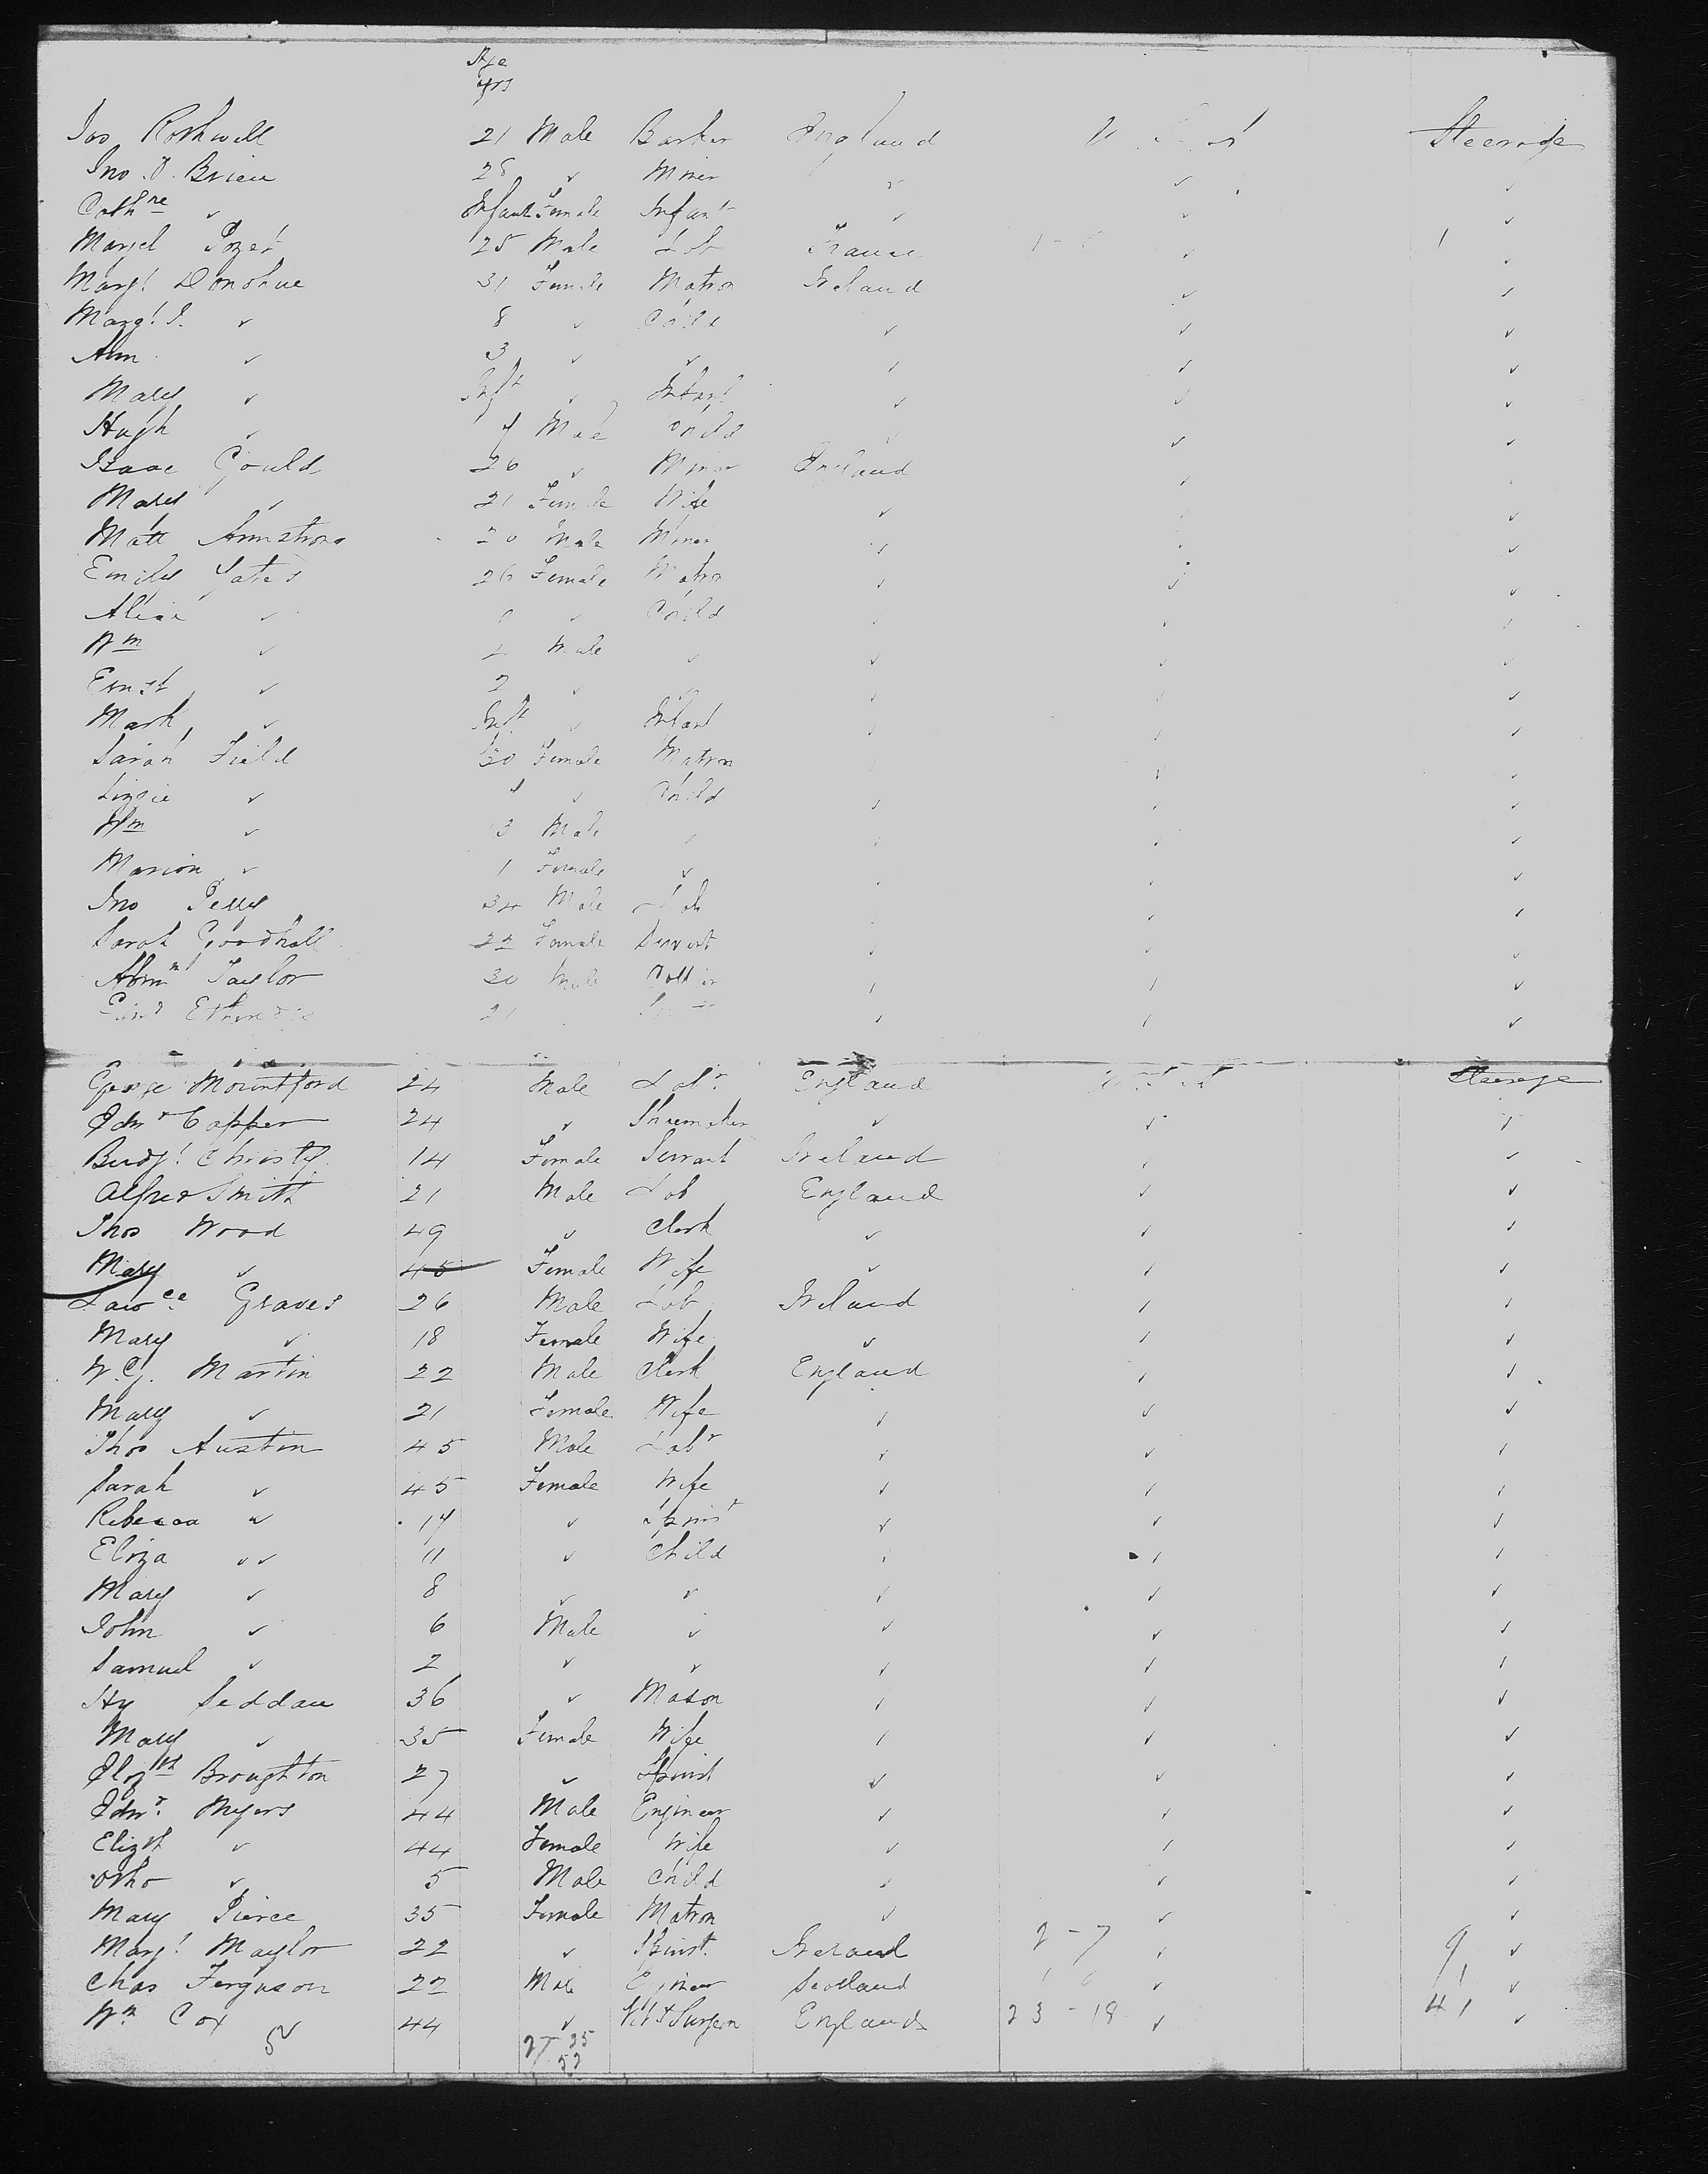 Age
yrs
Jas Rothwell 21 Male Barker England Steerage
Jno. O. Brien 28 " Miner " " "
Cathne " Infant Female Infant " " "
25 Male Lab France " "
Margt Donohue 31 Female Matron Ireland " "
Margt J. " 8 " Child " " "
Ann " 3 " " " " "
Mary " Inft " Infant " " "
Hugh " Male Child " " "
Isaac Gould 26 " Miner England " "
Mary " 21 Female Wife " " "
Matt Armstrong 20 Male Miner " " "
Emily Yates 26 Female Matron " " "
Alice " " Child " " "
Wm " Male " " " "
Ernst " 2 " " " " "
Mark " Inft " Infant " " "
Sarah Field 30 Female Matron " " "
Lizzie " " Child " " "
Wm " 3 Male " " " "
Marion " 1 Female " " " "
Jno 34 Male Lab " " "
Sarah Goodhall 22 Female Servant " " "
Abrm Taylor 30 Male Collier " " "
" " "
George Mountford 24 Male Labr England Steerage
Edwd Capper 24 " Shoemaker " " "
Bridgt Christy 14 Female Servant Ireland " "
Alfred Smith 21 Male Lab England " "
Thos Wood 49 " Clerk " " "
Mary " 45 Female Wife " " "
Lawce Graves 26 Male Lab Ireland " "
Mary " 18 Female Wife " " "
W. G. Martin 22 Male Clerk England " "
Mary " 21 Female Wife " " "
Thos Austin 45 Male Labr " " "
Sarah " 45 Female Wife " " "
Rebecca " 17 " Spinst " " "
Eliza " 11 " Child " " "
Mary " 8 " " " " "
John " 6 Male " " " "
Samuel " 2 " " " " "
Hy Seddau 36 " Mason " " "
Mary " 35 Female Wife " " "
Elizth Broughton 27 " Spinst " " "
Edwd. Myers 44 Male Engineer " " "
Elizth " 44 Female Wife " " "
Otho " 5 Male Child " " "
Mary Pierce 35 Female Matron " " "
Margt Maylor 22 " Spinst. Ireland 2-7 " 9 "
Chas Ferguson 22 Male Engineer Scotland " 1 "
Wm Cox 44 " Vet Surgeon England 23-18 " 41 "
27 25
52